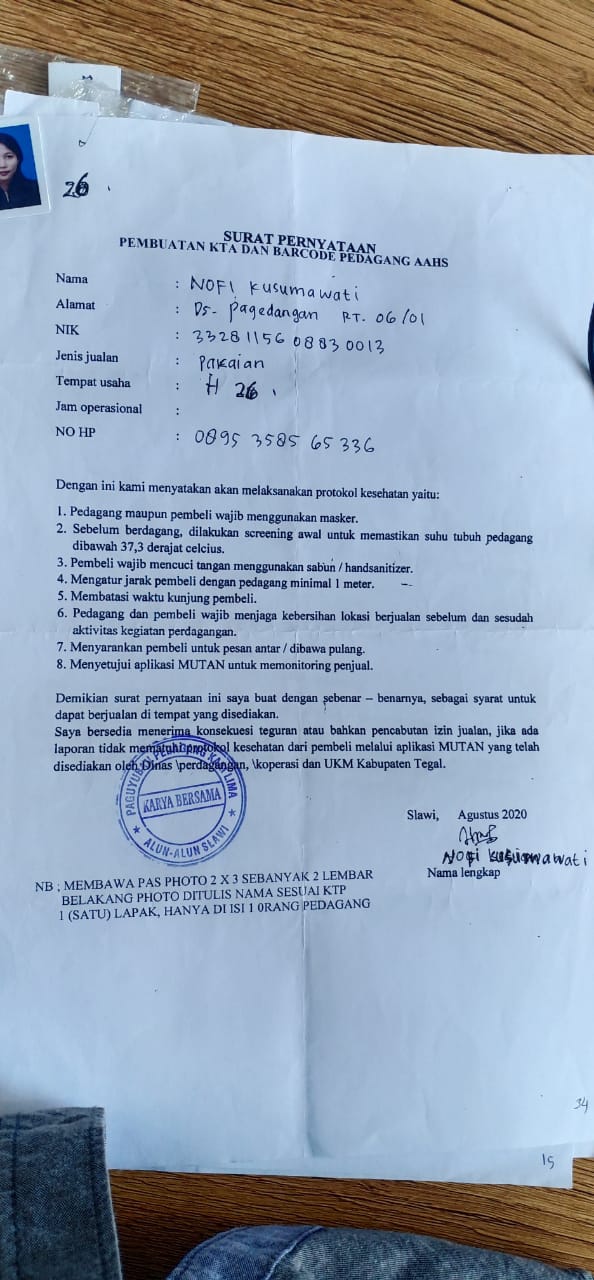 26
SURAT PERNYATAAN
PEMBUATAN KTA DAN BARCODE PEDAGANG AAHS
Nama : NOFI Kusumawati
Alamat : Ds- Pagedangan RT. 06/01
NIK : 33281156 0883 0013
Jenis jualan : Pakaian
Tempat usaha : H 26
Jam operasional :
NO HP : 0895 3585 65 336
Dengan ini kami menyatakan akan melaksanakan protokol kesehatan yaitu:
1. Pedagang maupun pembeli wajib menggunakan masker.
2. Sebelum berdagang, dilakukan screening awal untuk memastikan suhu tubuh pedagang
dibawah 37,3 derajat celcius.
3. Pembeli wajib mencuci tangan menggunakan sabun / handsanitizer.
4. Mengatur jarak pembeli dengan pedagang minimal 1 meter.
5. Membatasi waktu kunjung pembeli.
6. Pedagang dan pembeli wajib menjaga kebersihan lokasi berjualan sebelum dan sesudah
aktivitas kegiatan perdagangan.
7. Menyarankan pembeli untuk pesan antar / dibawa pulang.
8. Menyetujui aplikasi MUTAN untuk memonitoring penjual.
Demikian surat pernyataan ini saya buat dengan sebenar – benarnya, sebagai syarat untuk
dapat berjualan di tempat yang disediakan.
Saya bersedia menerima konsekuesi teguran atau bahkan pencabutan izin jualan, jika ada
laporan tidak mematuhi protokol kesehatan dari pembeli melalui aplikasi MUTAN yang telah
disediakan oleh Dinas \perdagangan, \koperasi dan UKM Kabupaten Tegal.
PAGUYUBAN PEDAGANG KAKI LIMA
KARYA BERSAMA
ALUN-ALUN SLAWI
Slawi, Agustus 2020
Nofi kusumawati
Nama lengkap
NB ; MEMBAWA PAS PHOTO 2 X 3 SEBANYAK 2 LEMBAR
BELAKANG PHOTO DITULIS NAMA SESUAI KTP
1 (SATU) LAPAK, HANYA DI ISI 1 0RANG PEDAGANG
34
15